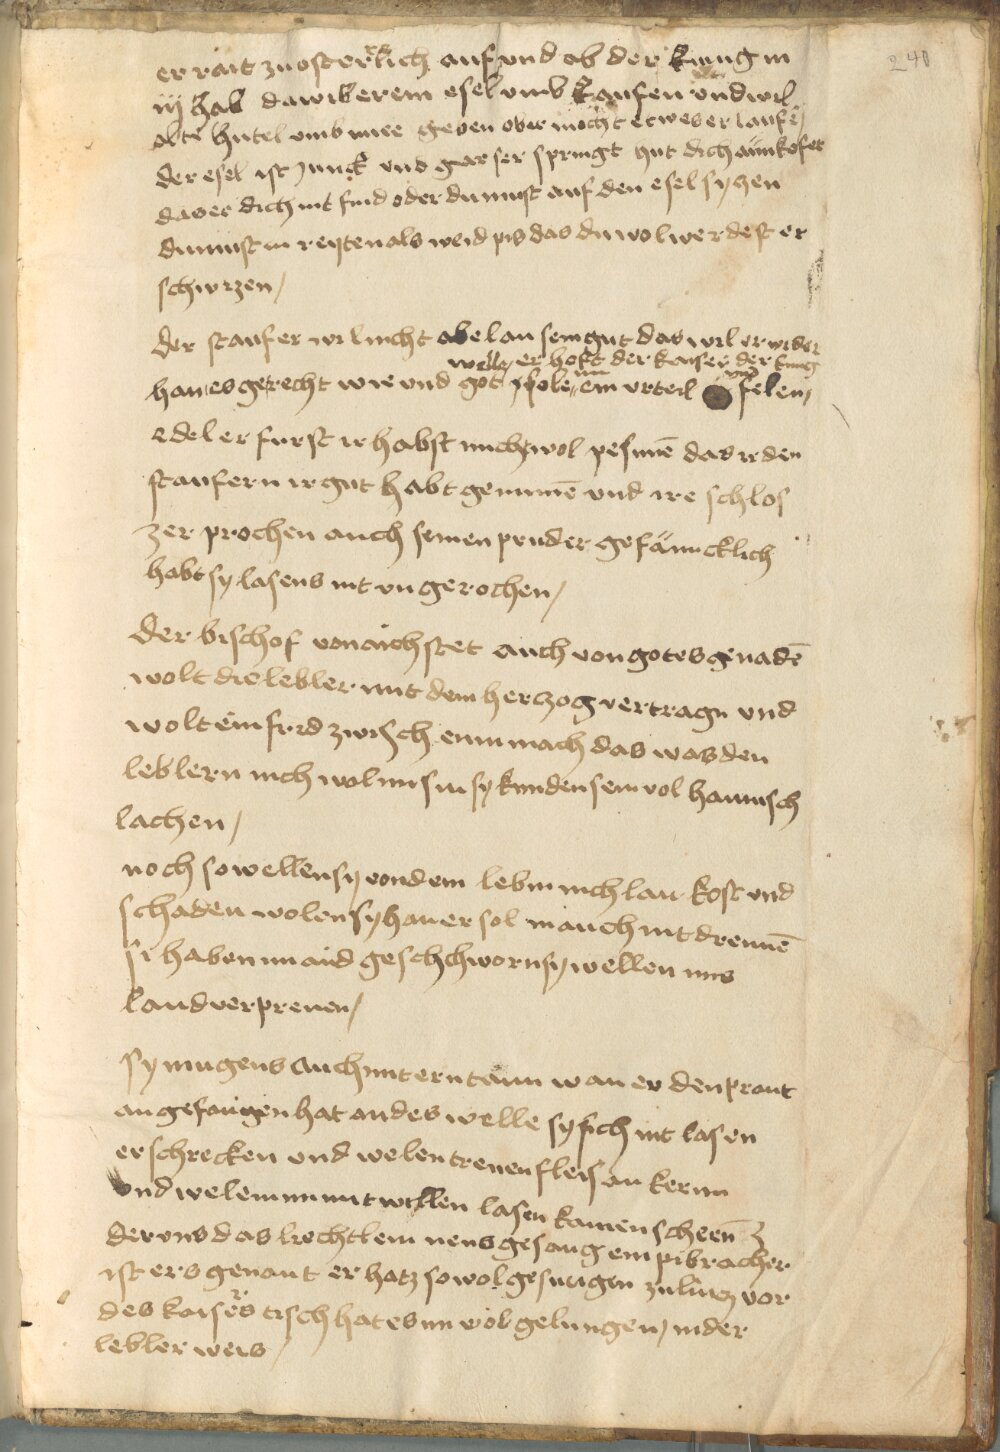 240
er rait zu osterrich auf und ob der kunig in
iij hab da wil er em esel umb kaufen und wil
alte hutel umb nuce geben ober mocht etwes er laufē
der esel ist junck und gar ser springt hut dich
das er dich nit find oder du must auf den esel syczen
du must in reyten als weid pis das du wol werdest er
schwizen /
Der staufer wil nicht abelan sein gut das wil er wider
welle er hoft der kaiser der kunig
han es gerecht wie und got sole im ein urteil und felen /
edeler furst ir habst nicht wol pesinnē das ir den
staufern ir gut habt genumē und ire schlos
zer prochen auch seinen pruder gefäncklich
habt sy lasens nit ungerochen /
Der bischof von aichstet auch von gotes genadē
wolt die lebler mit dem herczog vertragn und
wolt ein frid zwisch enin mach das was den
leblern nich wol im sin sy kunden sein vol hamisch
lachen /
noch so wellen sy von dem lebm nich lan kost und
schaden wolen sy han er sol in auch nit drennē
si haben im aid geschchworn sy wellen uns
land verprenen /
Sy mugens auch mit ern tann wan er den praut
angefangen hat an des welle sy sich nit lasen
erschrecken und welen trenen fleis an kerin
und welem im mutwillen lasen kamen scheēn
der uns das liechtlein neus gesang ein pibracher
ist ers genant er hatz so wol gesungen zu lincz vor
des kaisers tisch hat es im wol gelungen / in der
lebler weis /